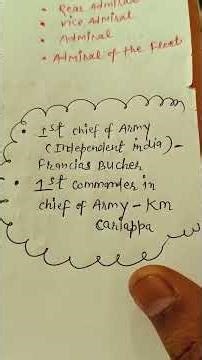 • Rear Admiral
• Vice Admiral
• Admiral
• Admiral of the Fleet
• 1st chief of Army
(Independent india) -
Francias Bucher
• 1st commander in
chief of Army - Km
Cariappa